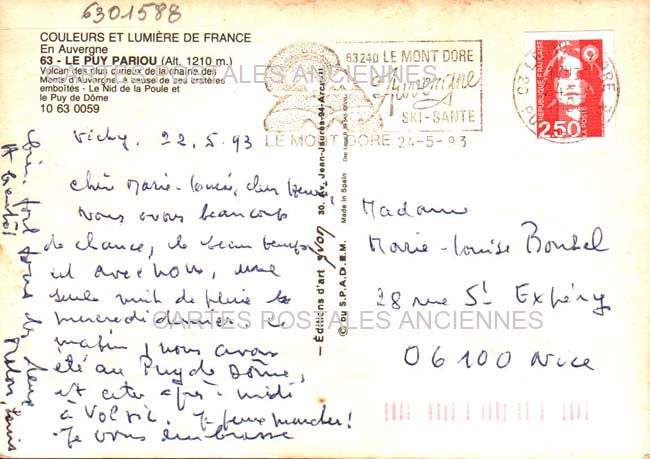 6301588
COULEURS ET LUMIÈRE DE FRANCE
En Auvergne
63 - LE PUY PARIOU (Alt. 1210 m.)
Volcan des plus curieux de la chaîne des
Monts d'Auvergne. A cause de ses cratères
emboîtés - Le Nid de la Poule et
le Puy de Dôme
10 63 0059
CARTES POSTALES ANCIENNES
63240 LE MONT DORE
Auvergne
SKI-SANTE
LE MONT DORE 24-5-93
RÉPUBLIQUE FRANÇAISE
2,50
LA POSTE
Vichy 22.5.93
Chère Marie-Louise, cher
Nous avons beaucoup
de chance, le beau temps
est avec nous, une
seule nuit de pluie le
mercredi dernier. Ce
matin, nous avons
été au Puy de Dôme,
et cet après-midi
à Volvic. Je peux marcher!
Je vous embrasse
fort tous les deux
A bientôt
Louis
— Éditions d'art yvon 30, Av. Jean-Jaurès-94-Arcueil
© by S.P.A.D.E.M. Made in Spain
Madame
Marie-Louise
28 rue St Expéry
06100 Nice
CARTES POSTALES ANCIENNES